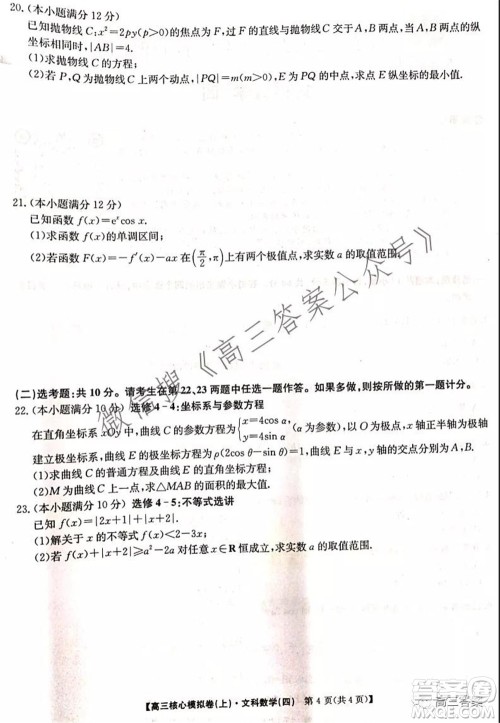 20.(本小题满分12分)
已知抛物线C:x²=2py(p>0)的焦点为F,过F的直线与抛物线C交于A,B两点,当A,B两点的纵
坐标相同时,|AB|=4.
(1)求抛物线C的方程;
(2)若P,Q为抛物线C上两个动点,|PQ|=m(m>0),E为PQ的中点,求点E纵坐标的最小值.
21.(本小题满分12分)
已知函数f(x)=eˣcos x.
(1)求函数f(x)的单调区间;
(2)若函数F(x)=-f′(x)-ax在(π/2,π)上有两个极值点,求实数a的取值范围.
微信搜《高三答案公众号》
(二)选考题:共10分。请考生在第22、23两题中任选一题作答。如果多做,则按所做的第一题计分。
22.(本小题满分10分)选修4-4:坐标系与参数方程
在直角坐标系xOy中,曲线C的参数方程为{x=4cos α, y=4sin α (α为参数),以坐标原点O为极点,x轴正半轴为极轴
建立极坐标系,曲线E的极坐标方程为ρ(2cos θ-sin θ)=1,曲线E与x轴和y轴的交点分别为A,B.
(1)求曲线C的普通方程与曲线E的直角坐标方程;
(2)M为曲线C上一点,求△MAB的面积的最大值.
23.(本小题满分10分)选修4-5:不等式选讲
已知f(x)=|2x+1|+|x+2|.
(1)解关于x的不等式f(x)<2-3x;
(2)若f(x)+|x+2|≥a²-2a对任意x∈R恒成立,求实数a的取值范围.
【高三核心模拟卷(上)·文科数学(四) 第4页(共4页)】
高三答案